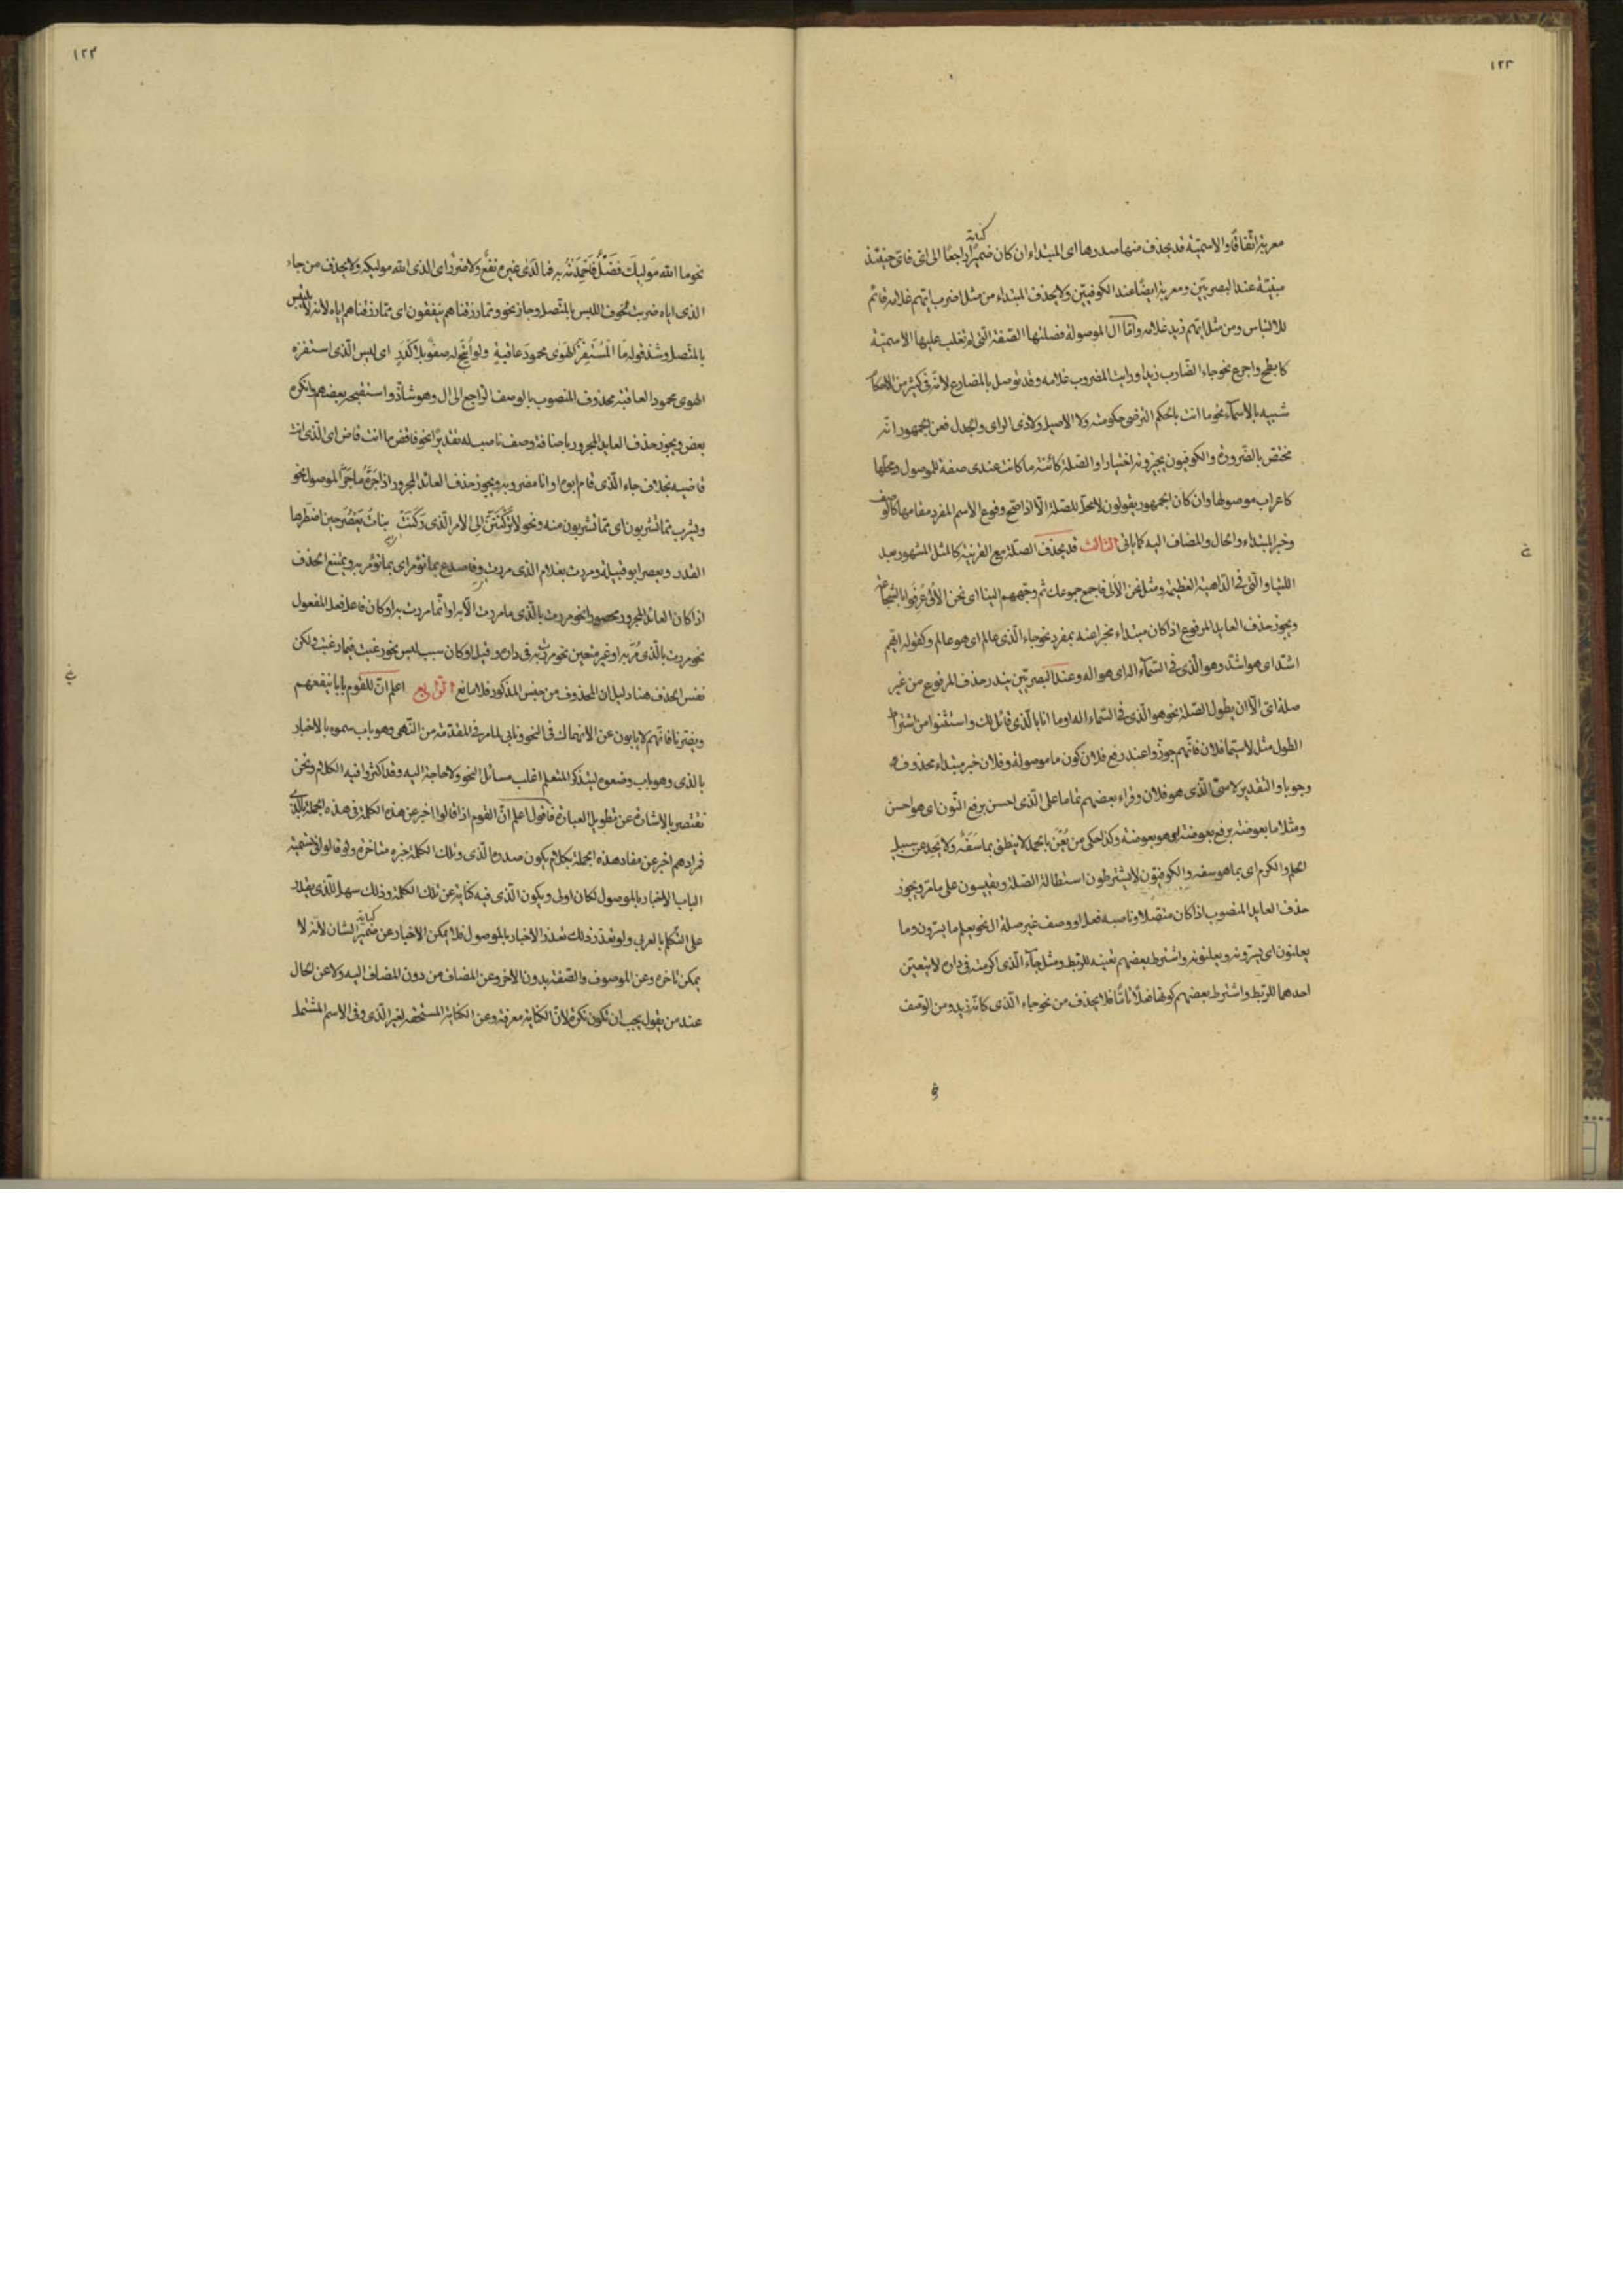 ١٢٣
كناية
معربة اتفاقا والاسمية قد يحذف منها صدرها اى المبتداء ان كان ضميرا راجعا الى اى فاى حينئذ
مبنية عند البصريين ومعربة ايضا عند الكوفيين ولا يحذف المبتداء من مثل اضرب ايهم غلامه قائم
للالتباس ومن مثل ايهم زيد غلامه واما ال الموصولة فصلتها الصفة التى لم تغلب عليها الاسمية
كابطح واجرع نحو جاء الضارب زيدا ورايت المضروب غلامه وقد توصل بالمضارع لانه فى كثير من الاحكام
شبيه بالاسماء نحو ما انت بالحكم الترضى حكومته ولا الاصيل ولا ذى الراى والجدل فعن الجمهور انه
مختص بالضرورة والكوفيون يجيزونه اختيارا والصلة كائنة ما كانت عندى صفة للموصول ومحلها
كاعراب موصولها وان كان الجمهور يقولون لا محل للصلة الا اذا صح وقوع الاسم المفرد مقامها كالوصف
وخبر المبتداء والحال والمضاف اليه كما ياتى الثالث قد يحذف الصلة مع القرينة كالمثل المشهور بعد
اللتيا والتى فى الداهية العظيمة ومثل نحن الالى فاجمع جموعك ثم وجههم الينا اى نحن الالى عرفوا بالشجاعة
ويجوز حذف العايد المرفوع اذا كان مبتداء مخبرا عنه بمفرد نحو جاء الذى عالم اى هو عالم وكقوله ايهم
اشد اى هو اشد وهو الذى فى السماء اله اى هو اله وعند البصريين يندر حذف المرفوع من غير
صلة اى الا ان يطول الصلة نحو هو الذى فى السماء اله او ما انا بالذى قائل لك واستثنوا من اشتراط
الطول مثل لاسيما فلان فانهم جوزوا عند رفع فلان كون ما موصولة وفلان خبر مبتداء محذوف
وجوبا والتقدير لاسى الذى هو فلان وقراء بعضهم تماما على الذى احسن برفع النون اى هو احسن
ومثلا ما بعوضة برفع بعوضة اى هو بعوضة وكذا حكى من يعن بالحمد لا ينطق بما سفه ولا يحد عن سبيل
الحلم والكرم اى بما هو سفه والكوفيون لا يشترطون استطالة الصلة ويقيسون على ما مر ويجوز
حذف العايد المنصوب اذا كان متصلا وناصبه فعل او وصف غير صلة ال نحو يعلم ما يسرون وما
يعلنون اى يسرونه ويعلنونه واشترط بعضهم تعينه للربط ومثل جاء الذى اكرمته فى داره لا يتعين
احدهما للربط واشترط بعضهم كونها فعلا تاما فلا يحذف من نحو جاء الذى كانه زيد ومن الوصف
١٢٤
نحو ما الله موليك فضل فاحمدنه به فما لدى غيره نفع ولا ضرر اى الذى الله موليكه ولا يحذف من جاء
الذى اياه ضربت لخوف اللبس بالمتصل وجاز نحو ومما رزقناهم ينفقون اى مما رزقناهم اياه لانه لا يلتبس
بالمتصل وشذ قوله ما المستفز الهوى محمود عاقبة ولو اتيح له صفو بلا كدر اى ليس الذى استفزه
الهوى محمود العاقبة محذوف المنصوب بالوصف الراجع الى ال وهو شاذ واستقبحه بعضهم وانكره
بعض ويجوز حذف العايد المجرور باضافة وصف ناصب له تقديرا نحو فاقض ما انت قاض اى الذى انت
قاضيه بخلاف جاء الذى قام ابوه او انا مضروبه ويجوز حذف العائد المجرور اذا جره ما جر الموصول نحو
ويشرب مما تشربون اى مما تشربون منه ونحو لا تركنن الى الامر الذى ركنت بناء يعصر حين اضطرها
القدر وبعصر ابو قبيلة ومررت بغلام الذى مررت به وفاصدع بما تؤمر اى بما تؤمر به ويمتنع الحذف
اذا كان العائد المجرور محصورا نحو مررت بالذى ما مررت الا به او انما مررت به او كان فاعل فعل المفعول
نحو مررت بالذى مر به او غير متعين نحو مررت به فى داره وقيل او كان سبب لبس نحو رغبت فيما رغبت ولكن
نفس الحذف هنا دليل ان المحذوف من جنس المذكور فلا مانع الرابع اعلم ان للقوم بابا ينفعهم
ويضرنا فانهم لا يابون عن الانهماك فى النحو ونابى لما مر فى المقدمة من النهى وهو باب سموه بالاخبار
بالذى وهو باب وضعوه ليتذكر المتعلم اغلب مسائل النحو ولا حاجة اليه وقد اكثروا فيه الكلام ونحن
نقتصر بالاشارة عن تطويل العبارة فاقول اعلم ان القوم اذا قالوا اخبر عن هذه الكلمة فى هذه الجملة بالذى
فمرادهم اخبر عن مفاد هذه الجملة بكلام يكون صدره الذى وتلك الكلمة خبره متاخرة ولو قالوا فى تسمية
الباب الاخبار بالموصول لكان اولى ويكون الذى فيه كناية عن تلك الكلمة وذلك سهل للذى يقدر
على التكلم بالعربى ولو تعذر ذلك تعذر الاخبار بالموصول فلا يمكن الاخبار عن ضمير الشان لانه لا
كناية
يمكن تاخره وعن الموصوف والصفة بدون الاخر وعن المضاف من دون المضاف اليه ولا عن الحال
عند من يقول يجب ان تكون نكرة لان الكناية معرفة وعن الكناية المستحقة لغير الذى وفى الاسم المشتمل